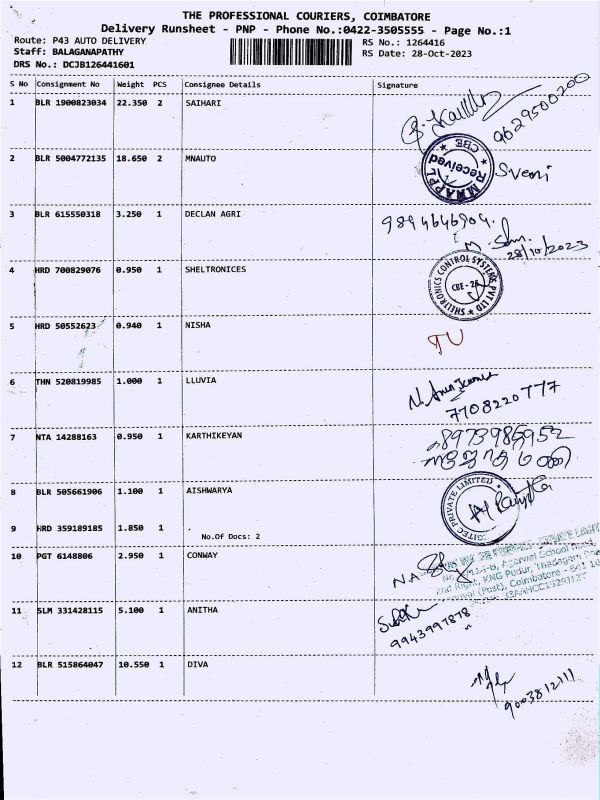 THE PROFESSIONAL COURIERS, COIMBATORE
Delivery Runsheet - PNP - Phone No.:0422-3505555 - Page No.:1
Route: P43 AUTO DELIVERY RS No.: 1264416
Staff: BALAGANAPATHY RS Date: 28-Oct-2023
DRS No.: DCJB126441601
S No Consignment No Weight PCS Consignee Details Signature
1 BLR 1900823034 22.350 2 SAIHARI
9629500200
2 BLR 5004772135 18.650 2 MNAUTO
CBE
Received
3 BLR 615550318 3.250 1 DECLAN AGRI
9894646904.
28/10/2023
4 HRD 700829076 0.950 1 SHELTRONICES
SHELTRONICS CONTROL SYSTEMS PVT LTD
CBE - 25
5 HRD 50552623 0.940 1 NISHA
TU
6 THN 520819985 1.000 1 LLUVIA
7708220777
7 NTA 14288163 0.950 1 KARTHIKEYAN
8973985952
8 BLR 505661906 1.100 1 AISHWARYA
PRIVATE LIMITED
9 HRD 359189185 1.850 1 .
No.Of Docs: 2
10 PGT 6148806 2.950 1 CONWAY
Agarwal School Road,
2nd Right, KNG Pudur, Thadagam Road
(Post), Coimbatore - 641 108
11 SLM 331428115 5.100 1 ANITHA
9943997878
12 BLR 515864047 10.550 1 DIVA
9003812111